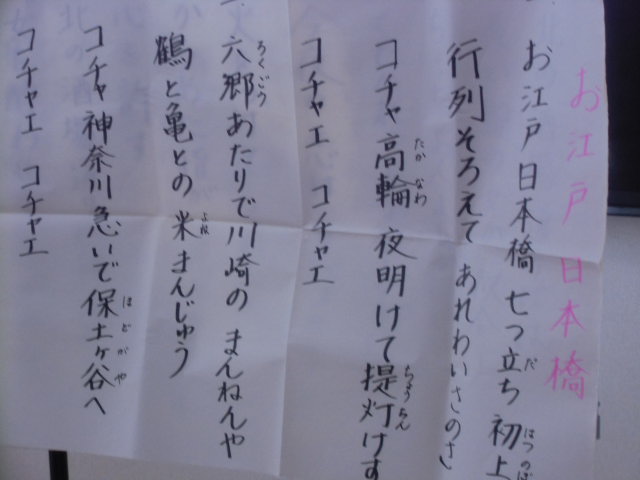 お江戸日本橋
お江戸日本橋 七つ立ち 初上
行列そろえて あれわいさのさ
コチャ高輪 夜明けて提灯けす
コチャエ コチャエ
一、六郷あたりで川崎の まんねんや
鶴と亀との米まんじゅう
コチャ神奈川急いで保土ヶ谷へ
コチャエ コチャエ